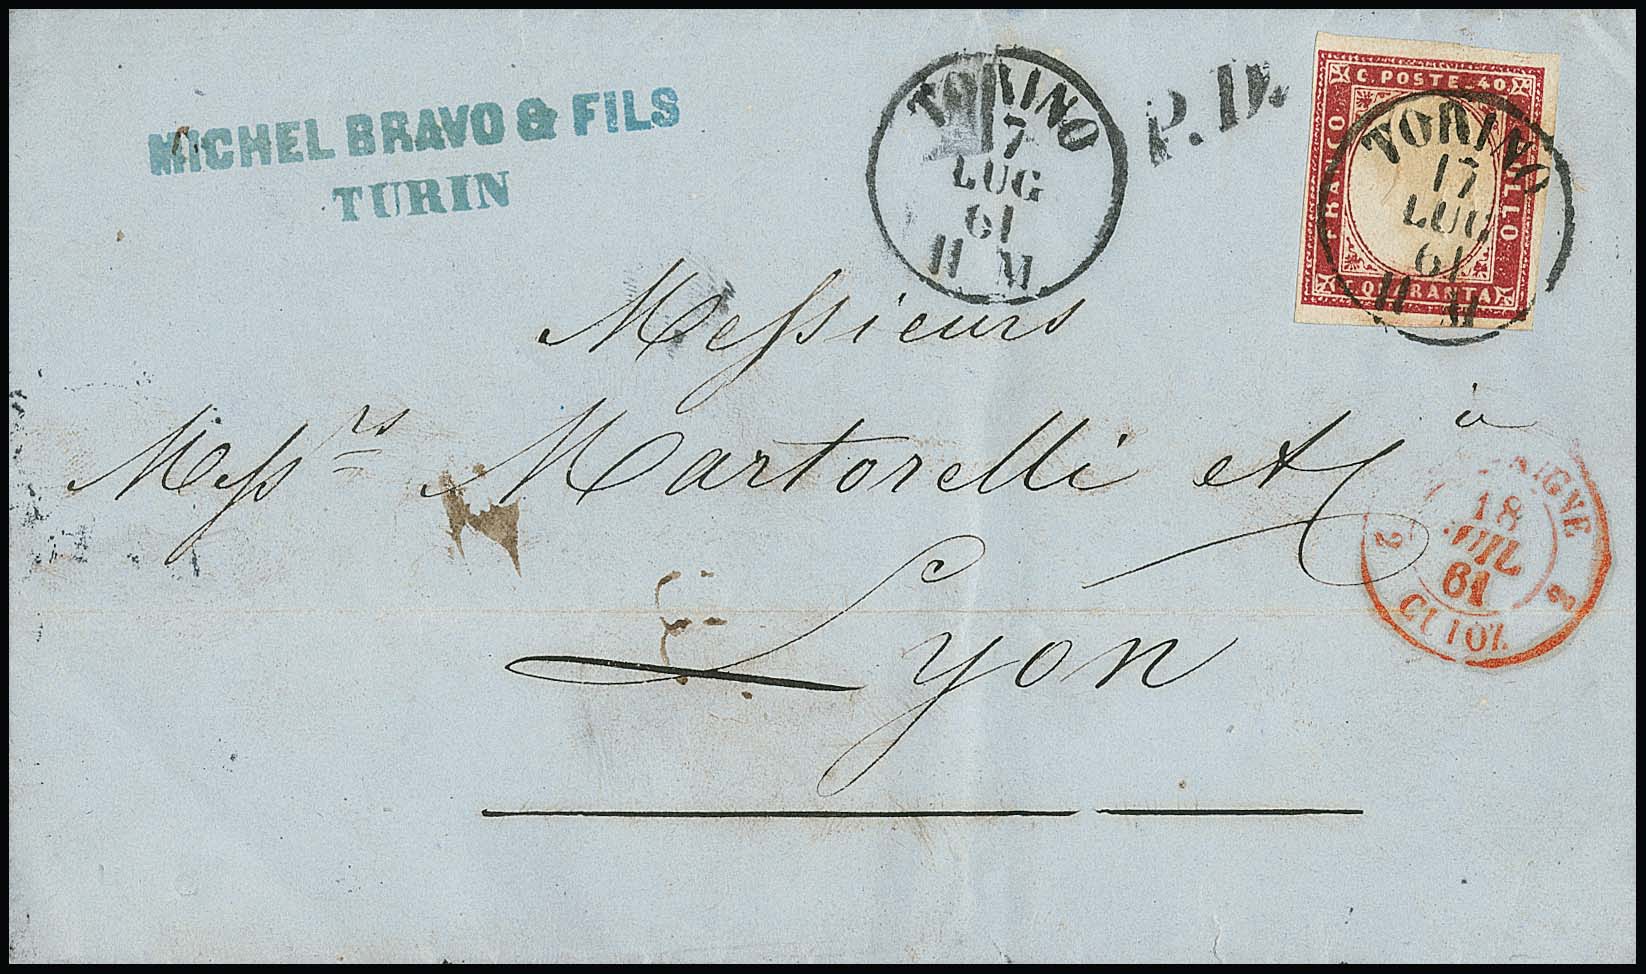 MICHEL BRAVO & FILS
TURIN
TORINO
17
LUG
61
11 M
P.D.
C. POSTE 40
FRANCO
BOLLO
QUARANTA
TORINO
17
LUG
61
11 M
Messieurs
Mess.rs Martorelli et C
à
Lyon
18
JUIL
61
2
8
CULOZ